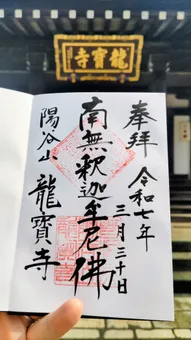 寺寳龍
奉拝 令和七年
三月三十日
南無釈迦牟尼佛
陽谷山 龍寳寺